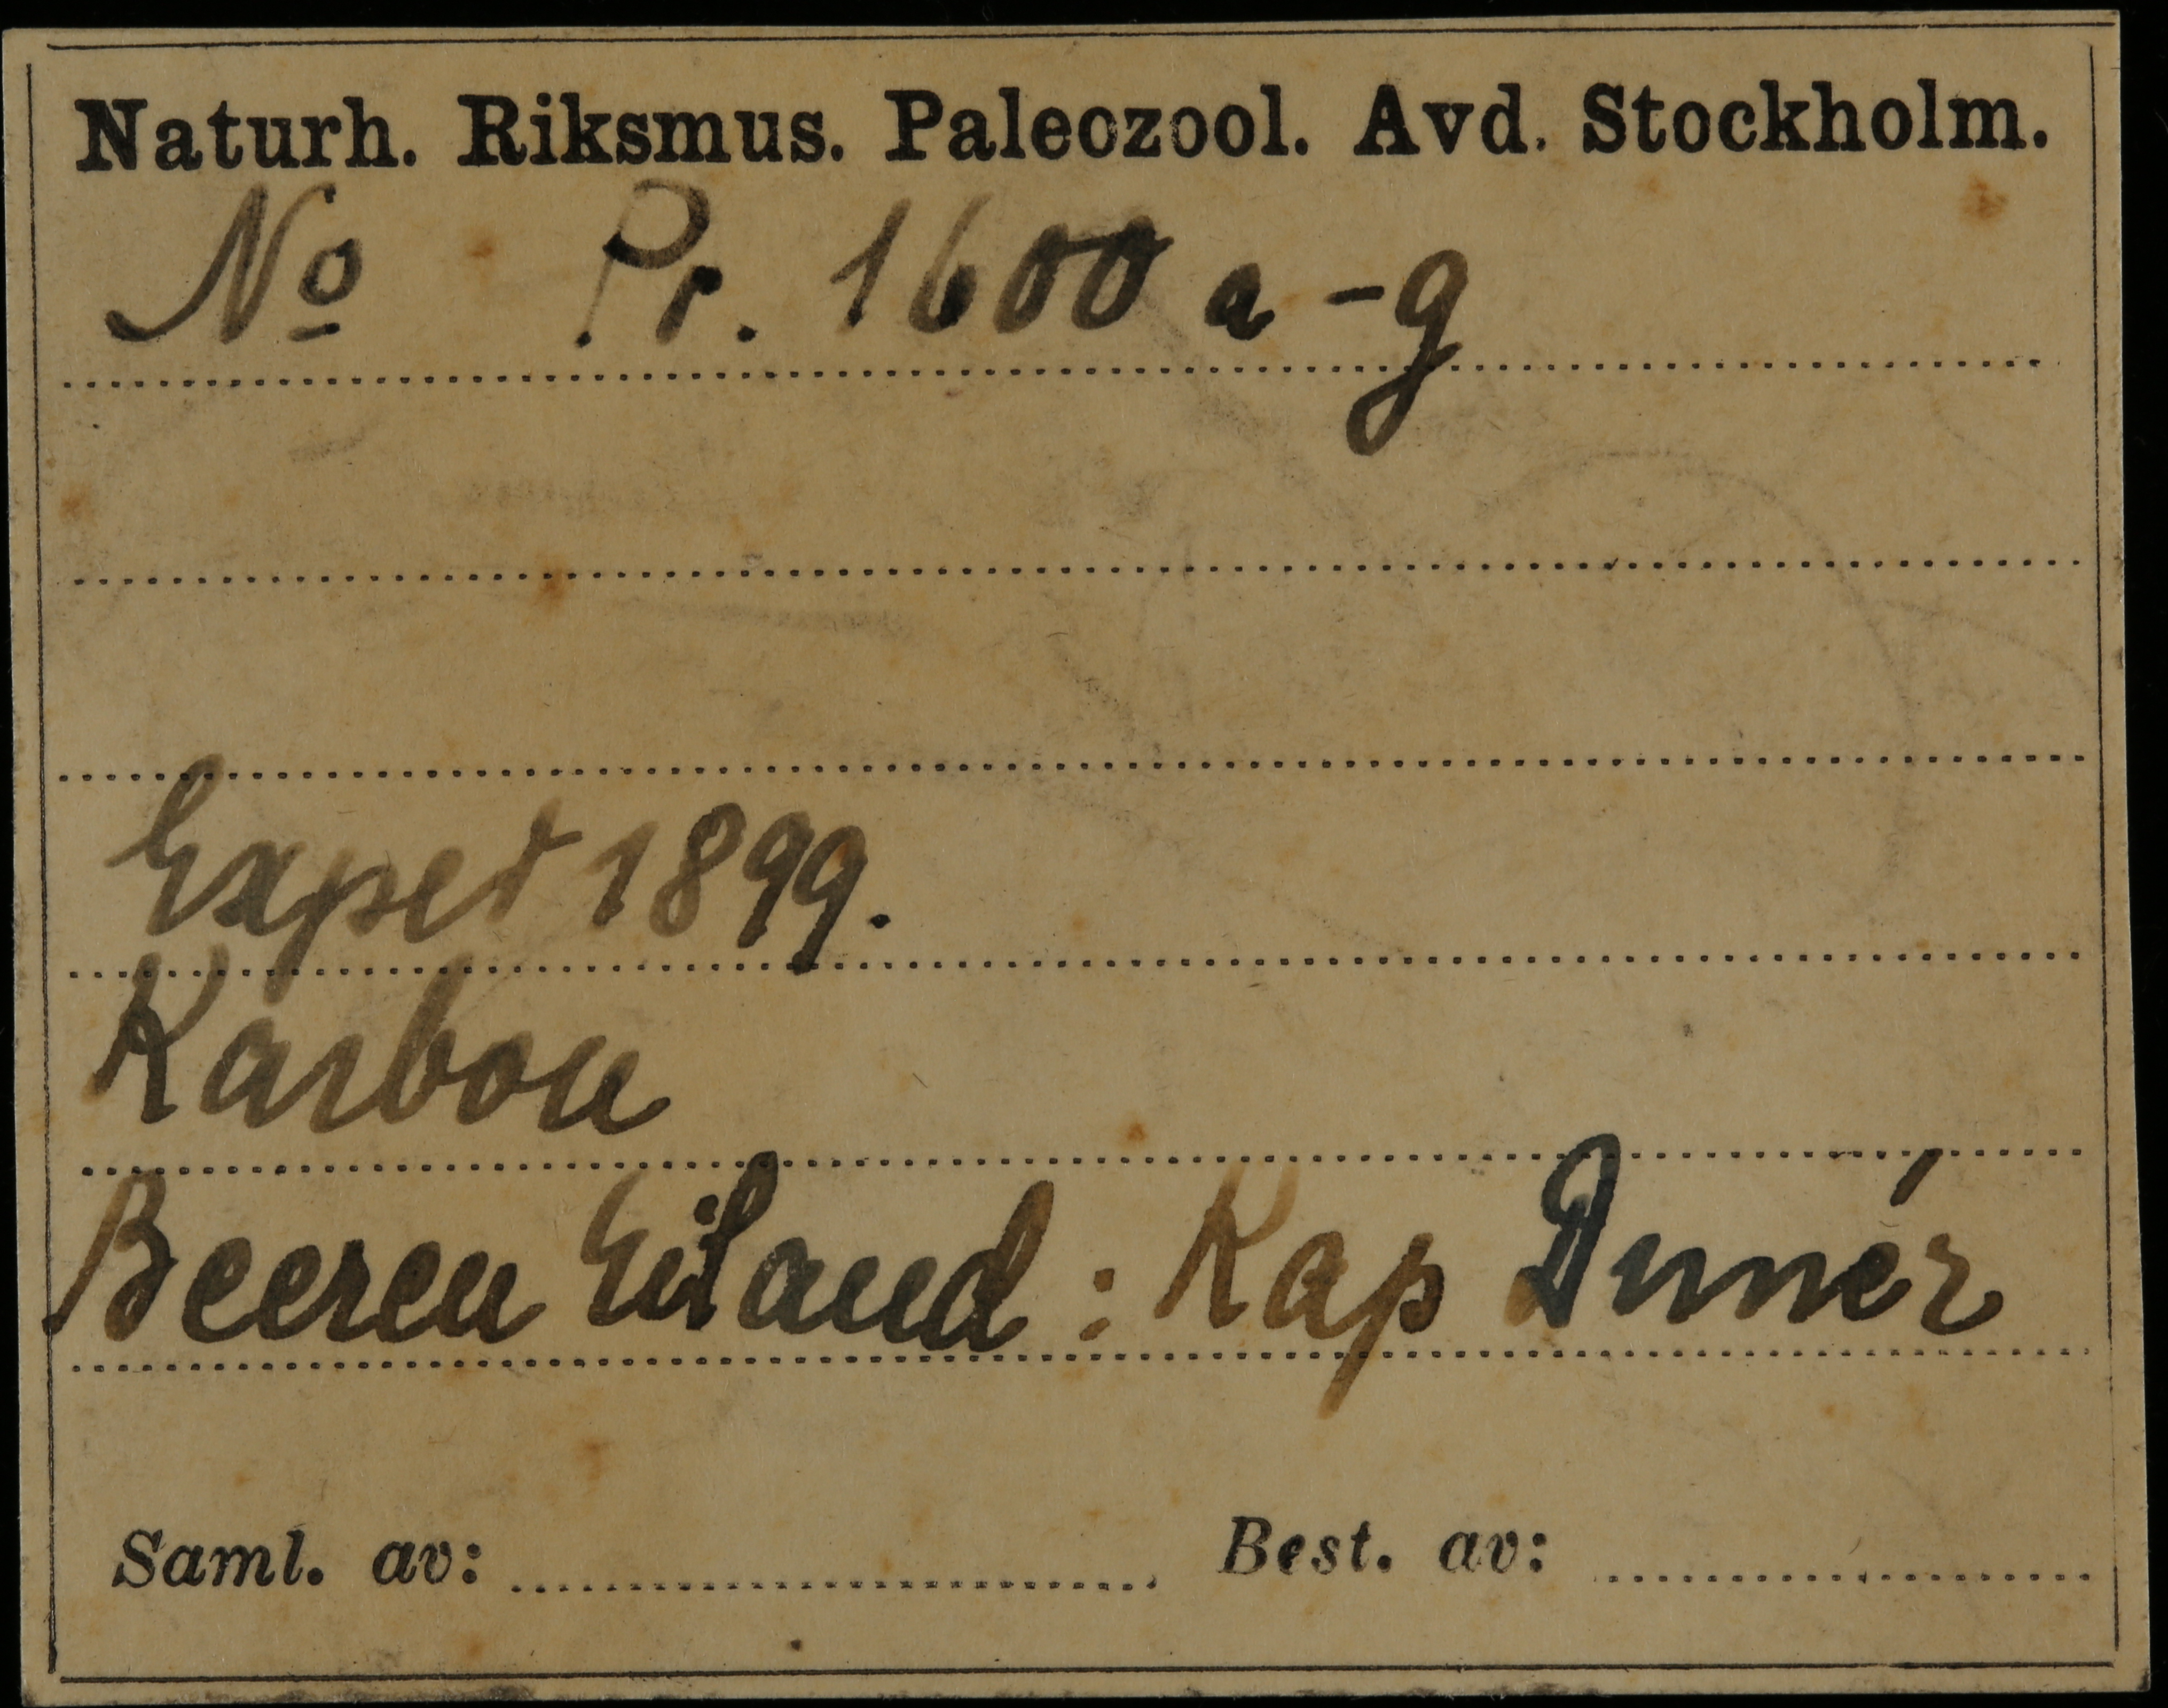 Naturh. Riksmus. Paleozool. Avd. Stockholm.
No Pr. 1600 a-g
Exped 1899.
Karbon
Beeren Eiland: Kap Dunér
Saml. av: Best. av: